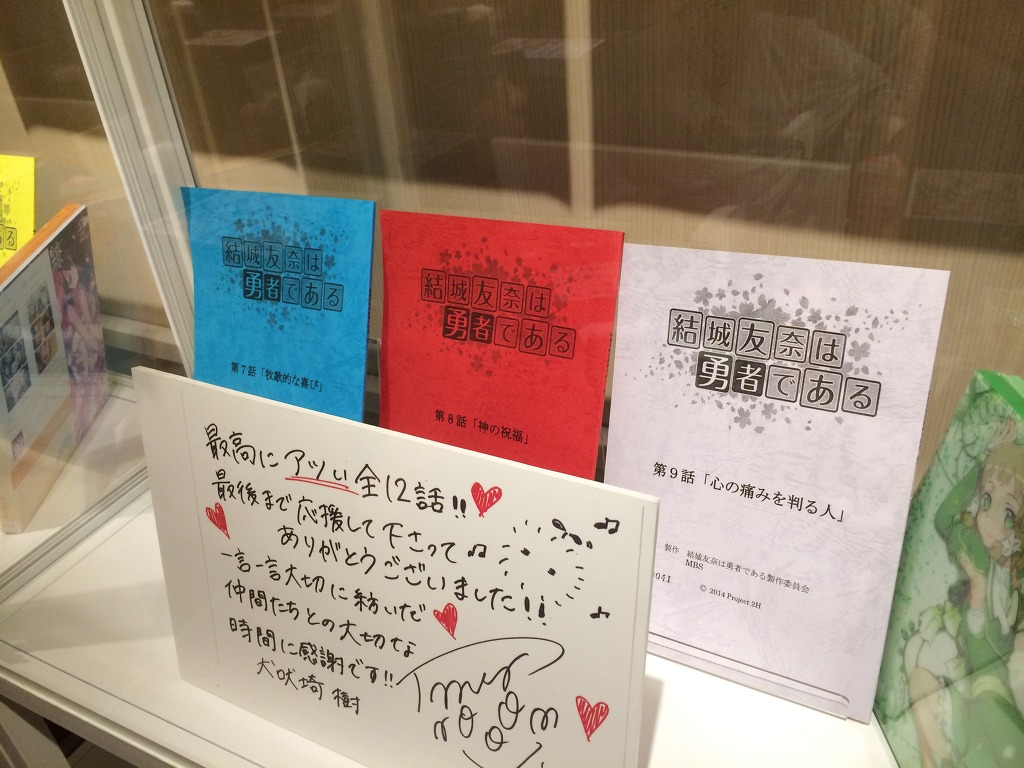 結城友奈は
勇者である
第7話「牧歌的な喜び」
結城友奈は
勇者である
第8話「神の祝福」
結城友奈は
勇者である
第9話「心の痛みを判る人」
製作 結城友奈は勇者である製作委員会
MBS
041
© 2014 Project 2H
最高にアツい全12話!!
最後まで応援して下さって
ありがとうございました!!
一言一言大切に紡いだ
仲間たちとの大切な
時間に感謝です!!
犬吠埼 樹